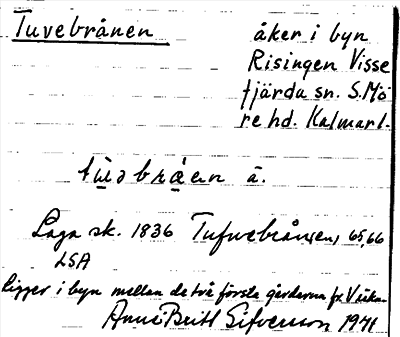 Tuvebrånen
åker i byn
Risingen Visse
fjärda sn. S. Mö
re hd. Kalmar l.
tùvbråen ä.
Laga sk. 1836 Tufvebrån(en) 65,66
LSA
ligger i byn mellan de två första gårdarna fr. Viska
Anne Britt Sifvesson 1971